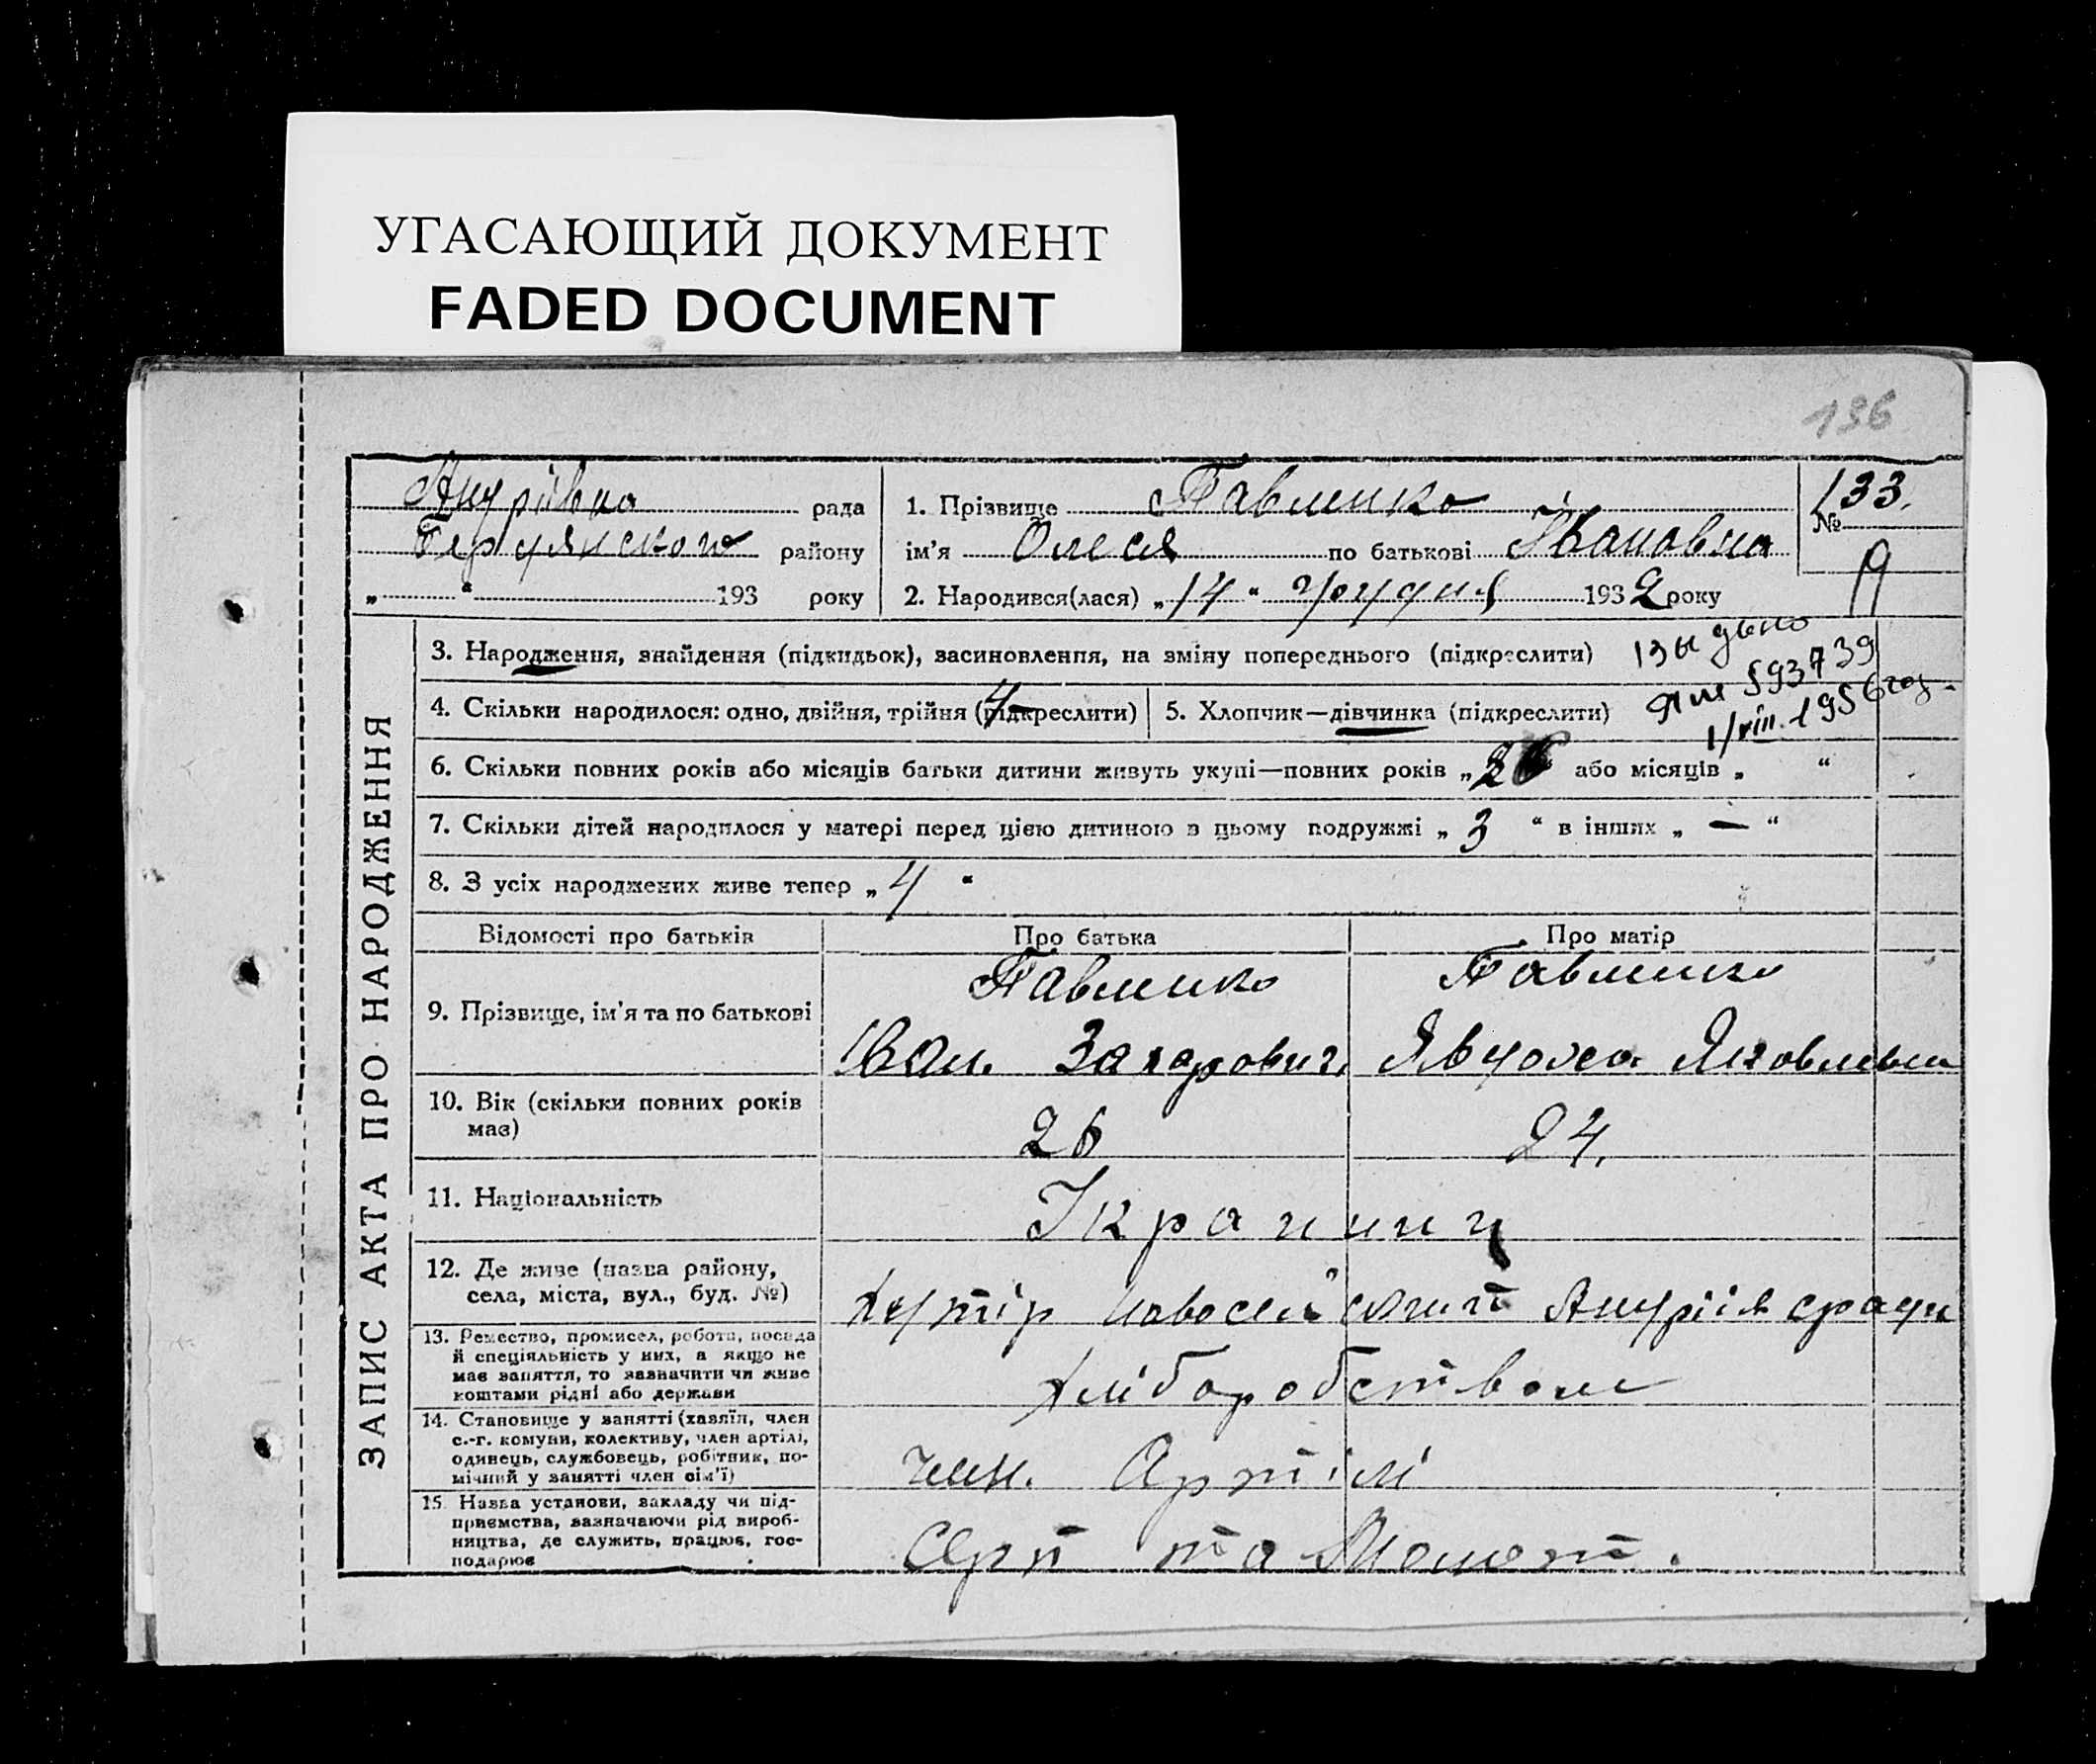 УГАСАЮЩИЙ ДОКУМЕНТ
FADED DOCUMENT
196
рада
району
„ “ 193 року
1. Прізвище Павленко
ім'я Олеся по батькові Івановна
2. Народився(лася) „14“ грудня 1932 року
133.
№
ЗАПИС АКТА ПРО НАРОДЖЕННЯ
3. Народження, знайдення (підкидьок), засиновлення, на зміну попереднього (підкреслити)
593739
1/VIII. 1956
4. Скільки народилося: одно, двійня, трійня (підкреслити)
5. Хлопчик—дівчинка (підкреслити)
6. Скільки повних років або місяців батьки дитини живуть укупі—повних років „ або місяців „ “
7. Скільки дітей народилося у матері перед цією дитиною в цьому подружжі „ 3 “ в інших „ — “
8. З усіх народжених живе тепер „ 4 “
Відомості про батьків
Про батька
Про матір
9. Прізвище, ім'я та по батькові
Павленко
Іван Захарович
Павленко
Явдоха Яковлевна
10. Вік (скільки повних років
має)
26
24.
11. Національність
12. Де живе (назва району,
села, міста, вул., буд. №)
хутір
13. Ремество, промисел, робота, посада
й спеціяльність у них, а якщо не
має заняття, то зазначити чи живе
коштами рідні або держави
Хліборобством
14. Становище у занятті (хазяїн, член
с.-г. комуни, колективу, член артілі,
одинець, службовець, робітник, по-
мічний у занятті член сім'ї)
член. Артілі
15. Назва установи, закладу чи під-
приємства, зазначаючи рід вироб-
ництва, де служить, працює, гос-
подарює
Серп та Молот.